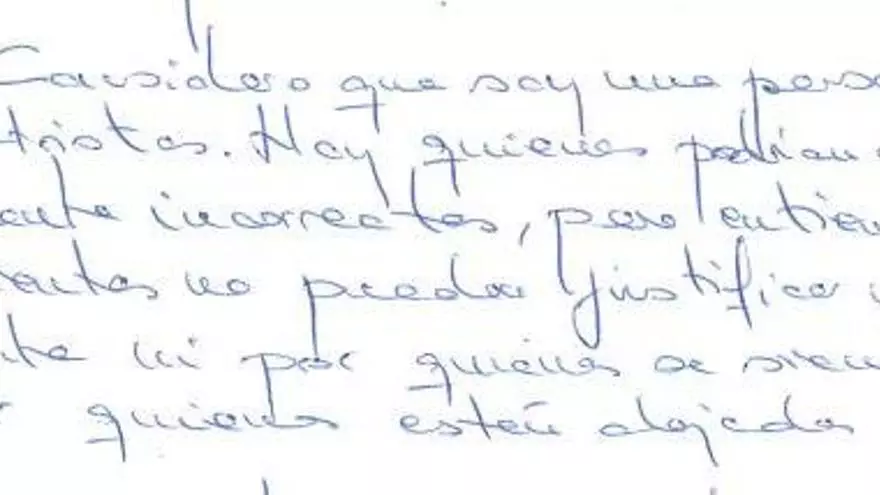 Considero que soy una perso
tristes. Hay quienes podrían
ante incorrectas, pero entien
entes no puedan justificar
te ni por quienes se sien
quienes estén alejados